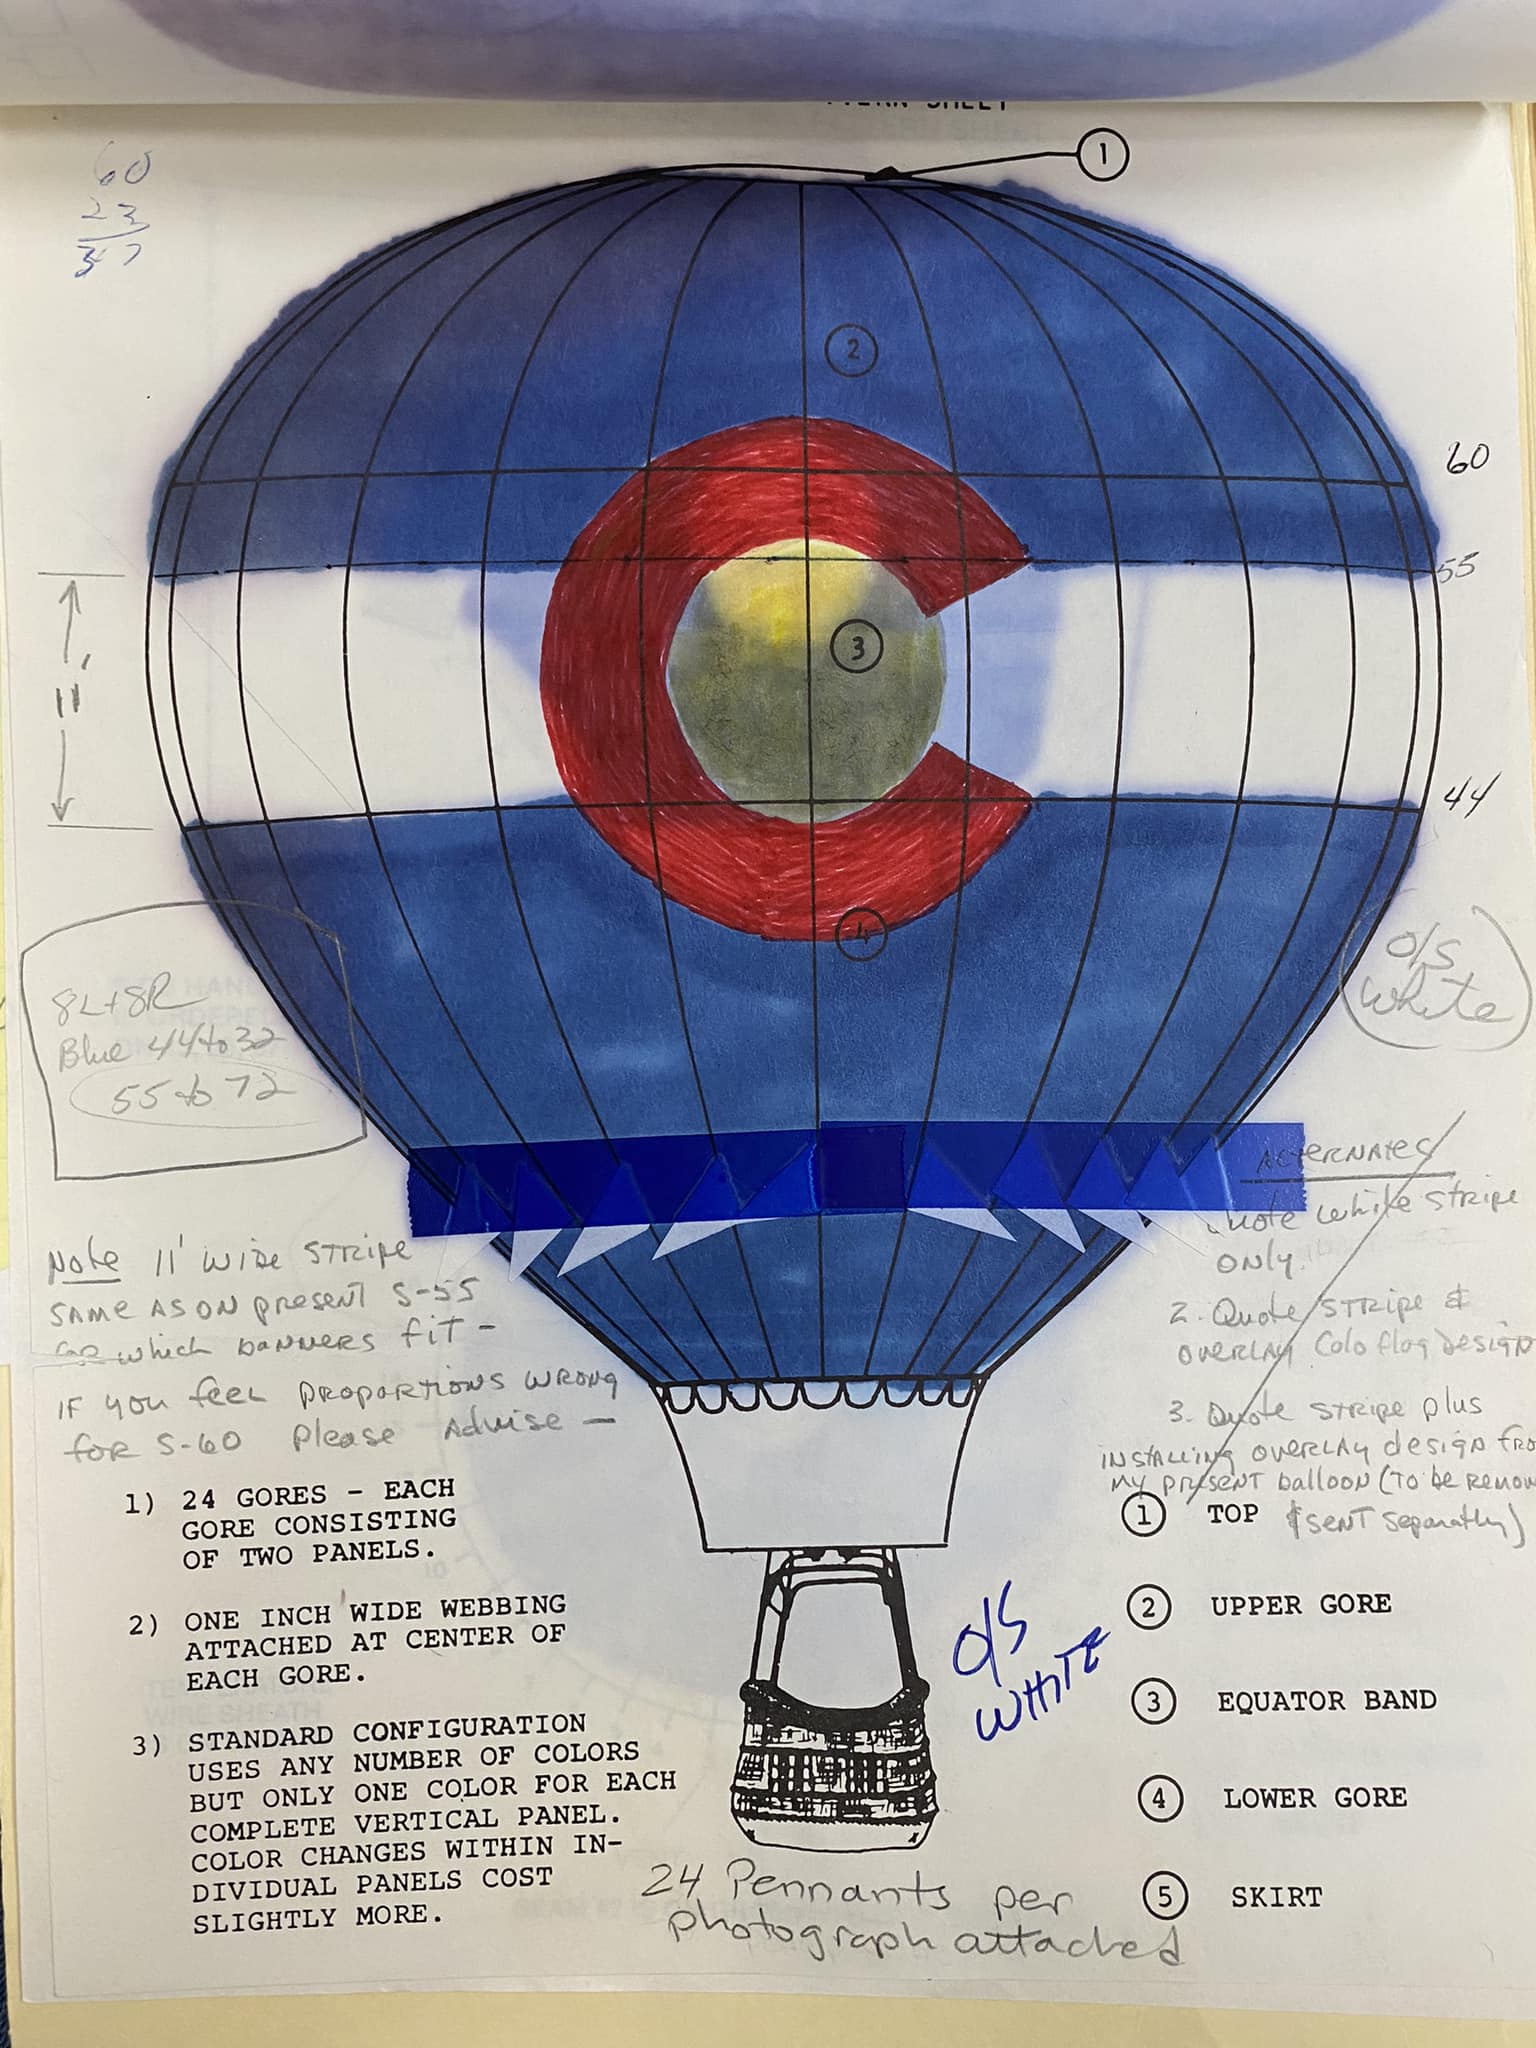 SHEET
1
60
23
37
2
60
55
3
11'
44
4
O/S
White
8L+8R
Blue 44 to 32
55 to 72
ALTERNATES
Quote white stripe
ONLY.
2. Quote STRIPE &
OVERLAY Colo flag design
3. Quote STRIPE plus
INSTALLING OVERLAY design fro
my present balloon (TO be remov
& SENT separately)
Note 11' WIDE STRIPE
SAME AS ON present S-55
on which banners fit -
IF you feel proportions wrong
for S-60 Please Advise -
1) 24 GORES - EACH
GORE CONSISTING
OF TWO PANELS.
2) ONE INCH WIDE WEBBING
ATTACHED AT CENTER OF
EACH GORE.
3) STANDARD CONFIGURATION
USES ANY NUMBER OF COLORS
BUT ONLY ONE COLOR FOR EACH
COMPLETE VERTICAL PANEL.
COLOR CHANGES WITHIN IN-
DIVIDUAL PANELS COST
SLIGHTLY MORE.
O/S
WHITE
1 TOP
2 UPPER GORE
3 EQUATOR BAND
4 LOWER GORE
5 SKIRT
24 Pennants per
photograph attached